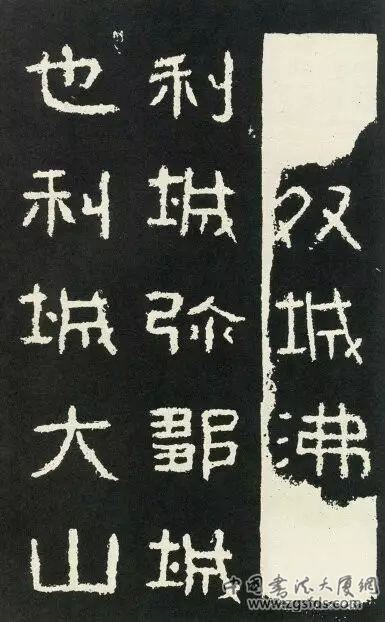 双城沸
利城弥鄒城
也利城大山
中国书法大厦網
www.zgsfds.com